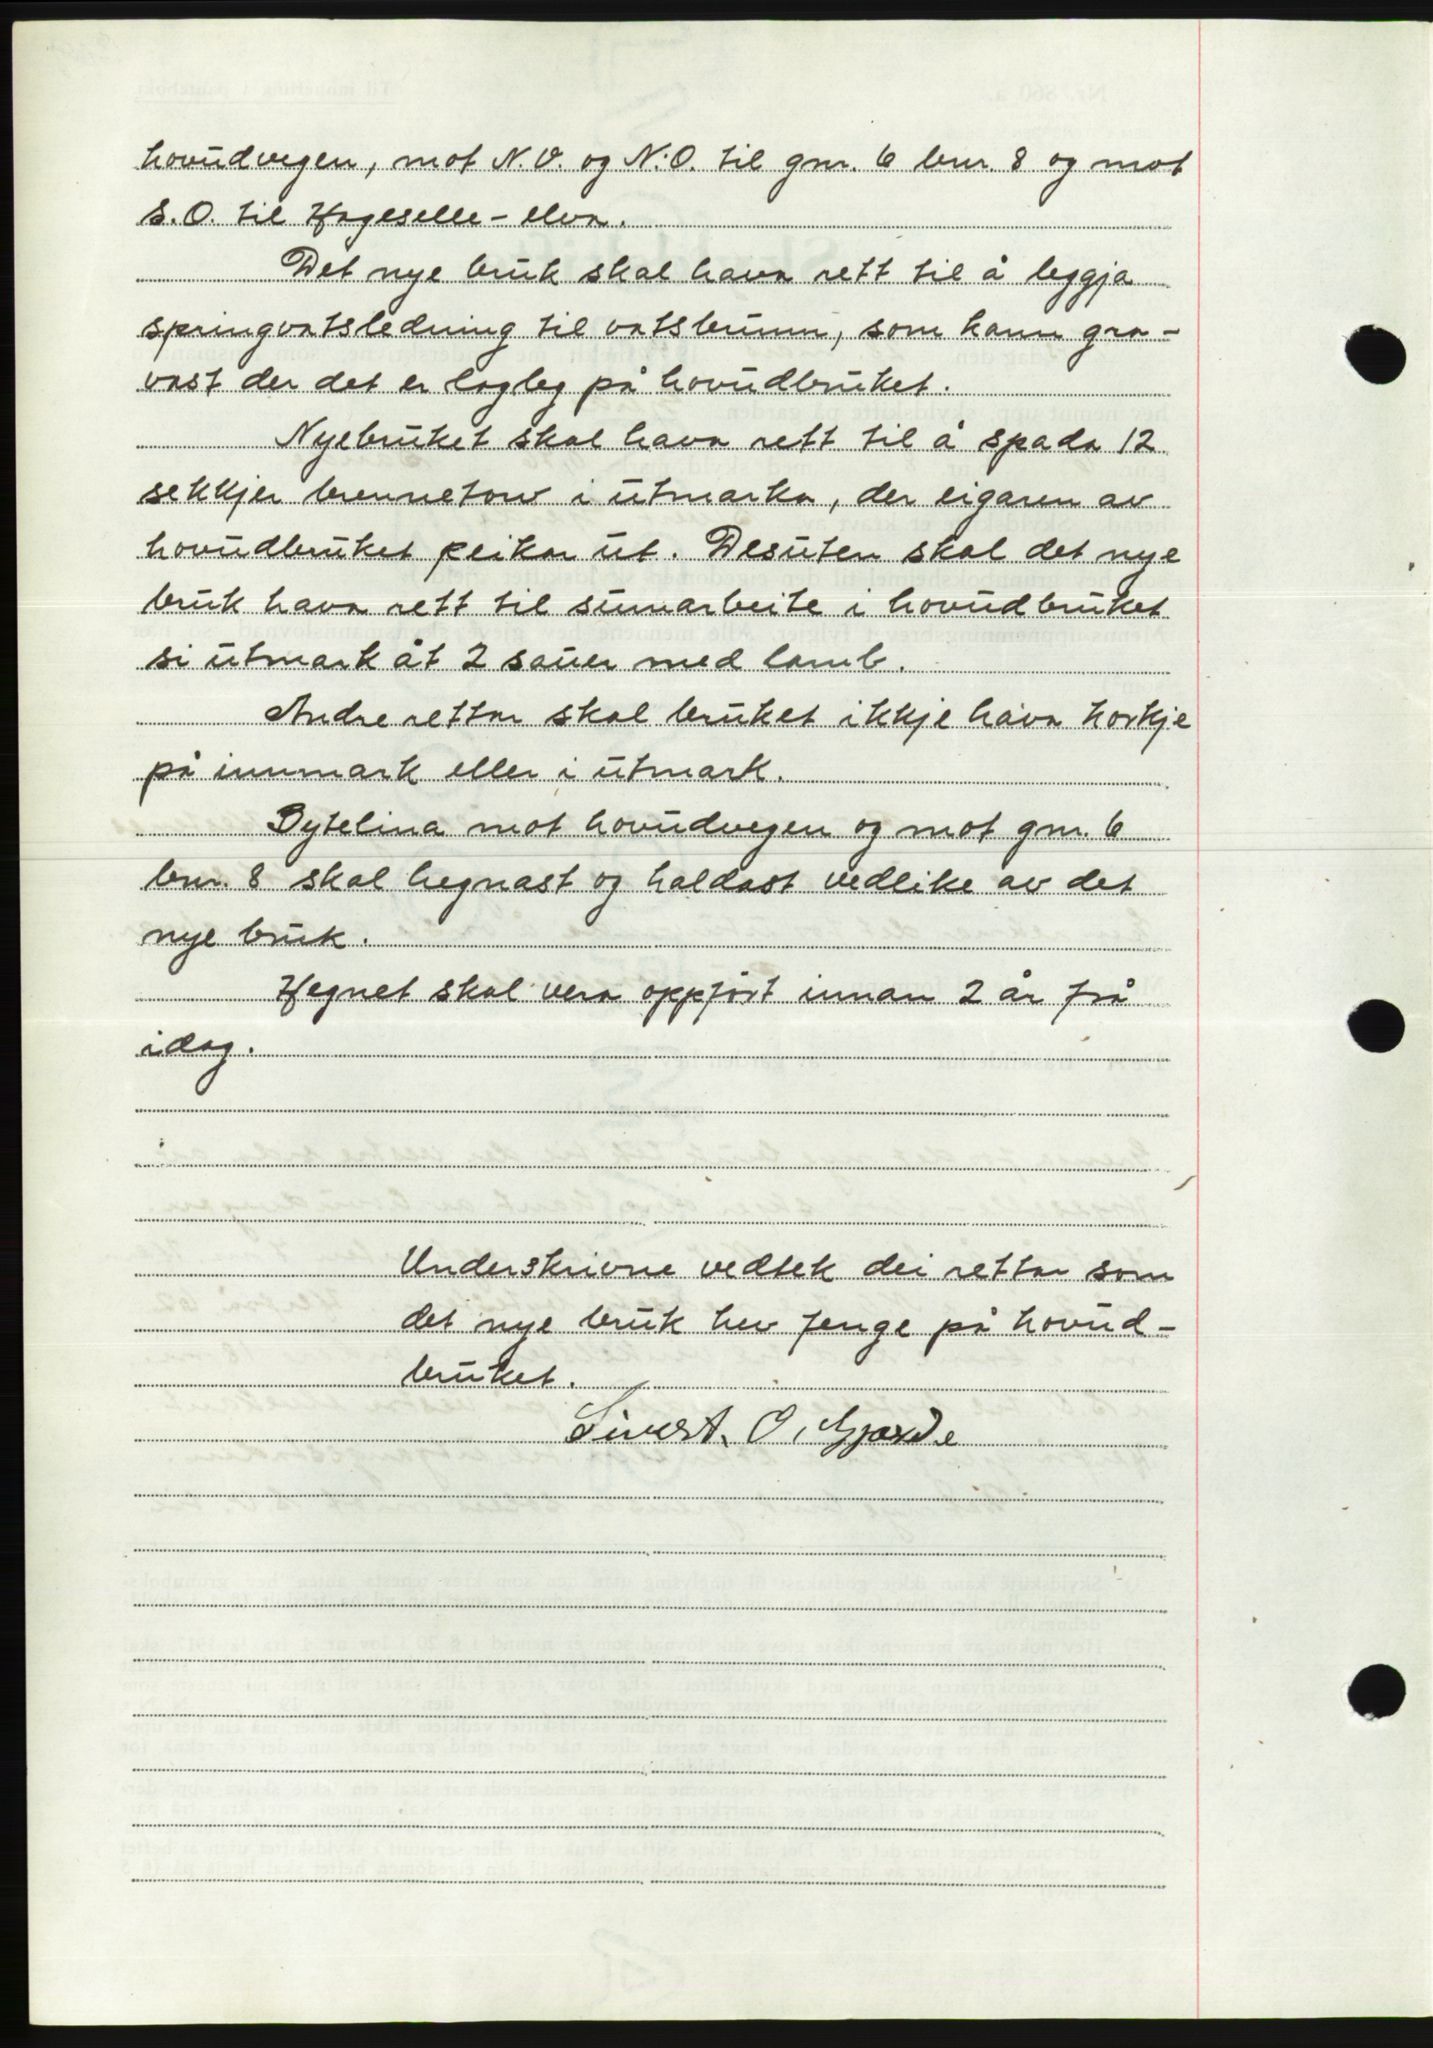 hovudvegen, mot N.V. og N.O. til gnr. 6 bnr. 8 og mot
S.O. til Hageselle-elva.
Det nye bruk skal hava rett til å leggja
springvatsledning til vatsbrunn, som kann gra-
vast der det er lagleg på hovudbruket.
Nyebruket skal hava rett til å spada 12
sekkjer brennetorv i utmarka, der eigaren av
hovudbruket peikar ut. Desuten skal det nye
bruk hava rett til sumarbeite i hovudbruket
si utmark åt 2 sauer med lamb.
Andre rettar skal bruket ikkje hava korkje
på innmark eller i utmark.
Bytelina mot hovudvegen og mot gnr. 6
bnr. 8 skal hegnast og haldast vedlike av det
nye bruk.
Hegnet skal vera oppført innan 2 år frå
idag.
Underskrivne vedtek dei rettar som
det nye bruk hev fenge på hovud-
bruket.
Sivert. O. Gjærde